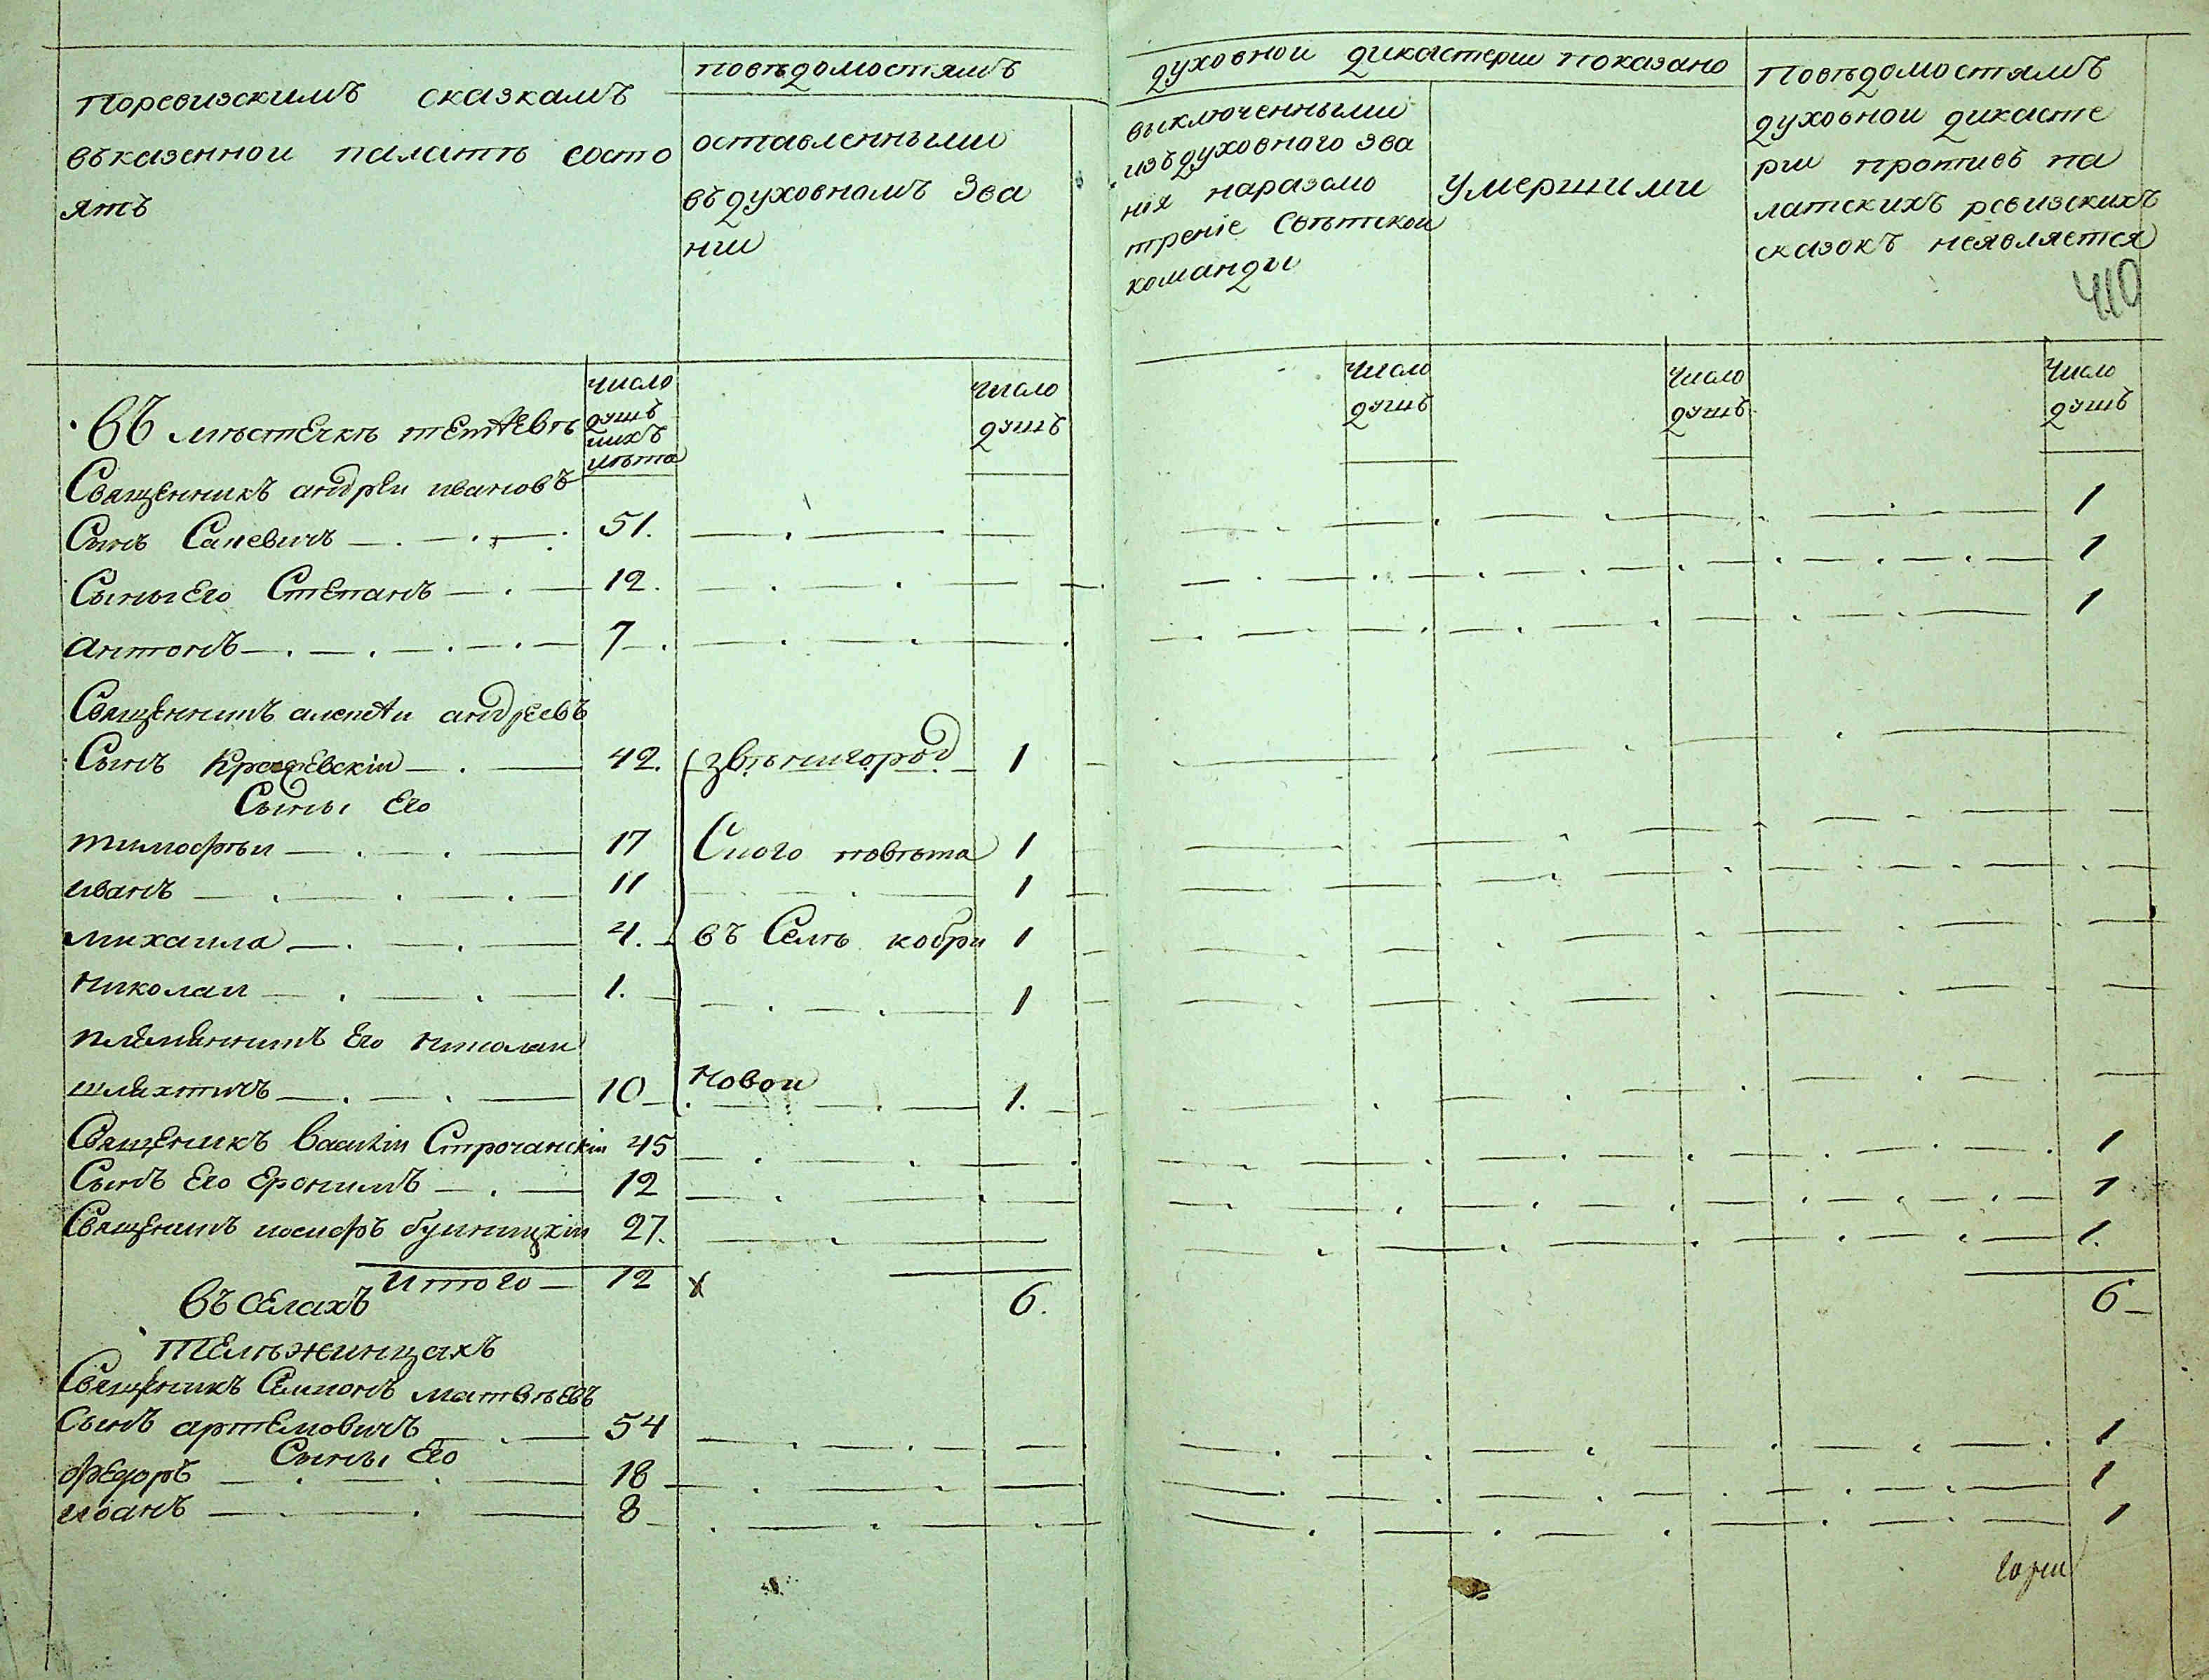 Поревизскимъ сказкамъ
въказенной палатѣ состо
ятъ
повѣдомостямъ
оставленными
въдуховномъ зва
нии
духовной дикастерии показано
выключенными
изъдуховного зва
нія наразсмо
треніе свѣтской
команды
Умершими
Повѣдомостямъ
духовной дикасте
рии противъ па
латскихъ ревизскихъ
сказокъ неявляется
410
число
душъ
ихъ
лѣта
число
душъ
число
душъ
число
душъ
число
душъ
Въ мѣстечкѣ тетїевѣ
Священникъ андрей ивановъ
Сынъ Саневичъ 51. 1
Сыны Его Степанъ 12. 1
антонъ 7 1
Священникъ алексѣй андреевъ
Сынъ 42. звѣнигород 1
Сыны Его
тимофѣй 17 Сного повѣта 1
иванъ 11 1
михаила 4. въ Селѣ кобри 1
Николай 1. 1
племянникъ Его Николай
шляхтичъ 10 Новой 1.
Священикъ Василій Строчанскій 45 1
Сынъ Его Еронимъ 12 1
Священикъ иосифъ 27. 1.
Итого 12 6. 6
Въ Селахъ
Телѣжинцахъ
Священикъ Симионъ матвѣевъ
Сынъ артемовичъ 54 1
Сыны Его
Федоръ 18 1
иванъ 8 1